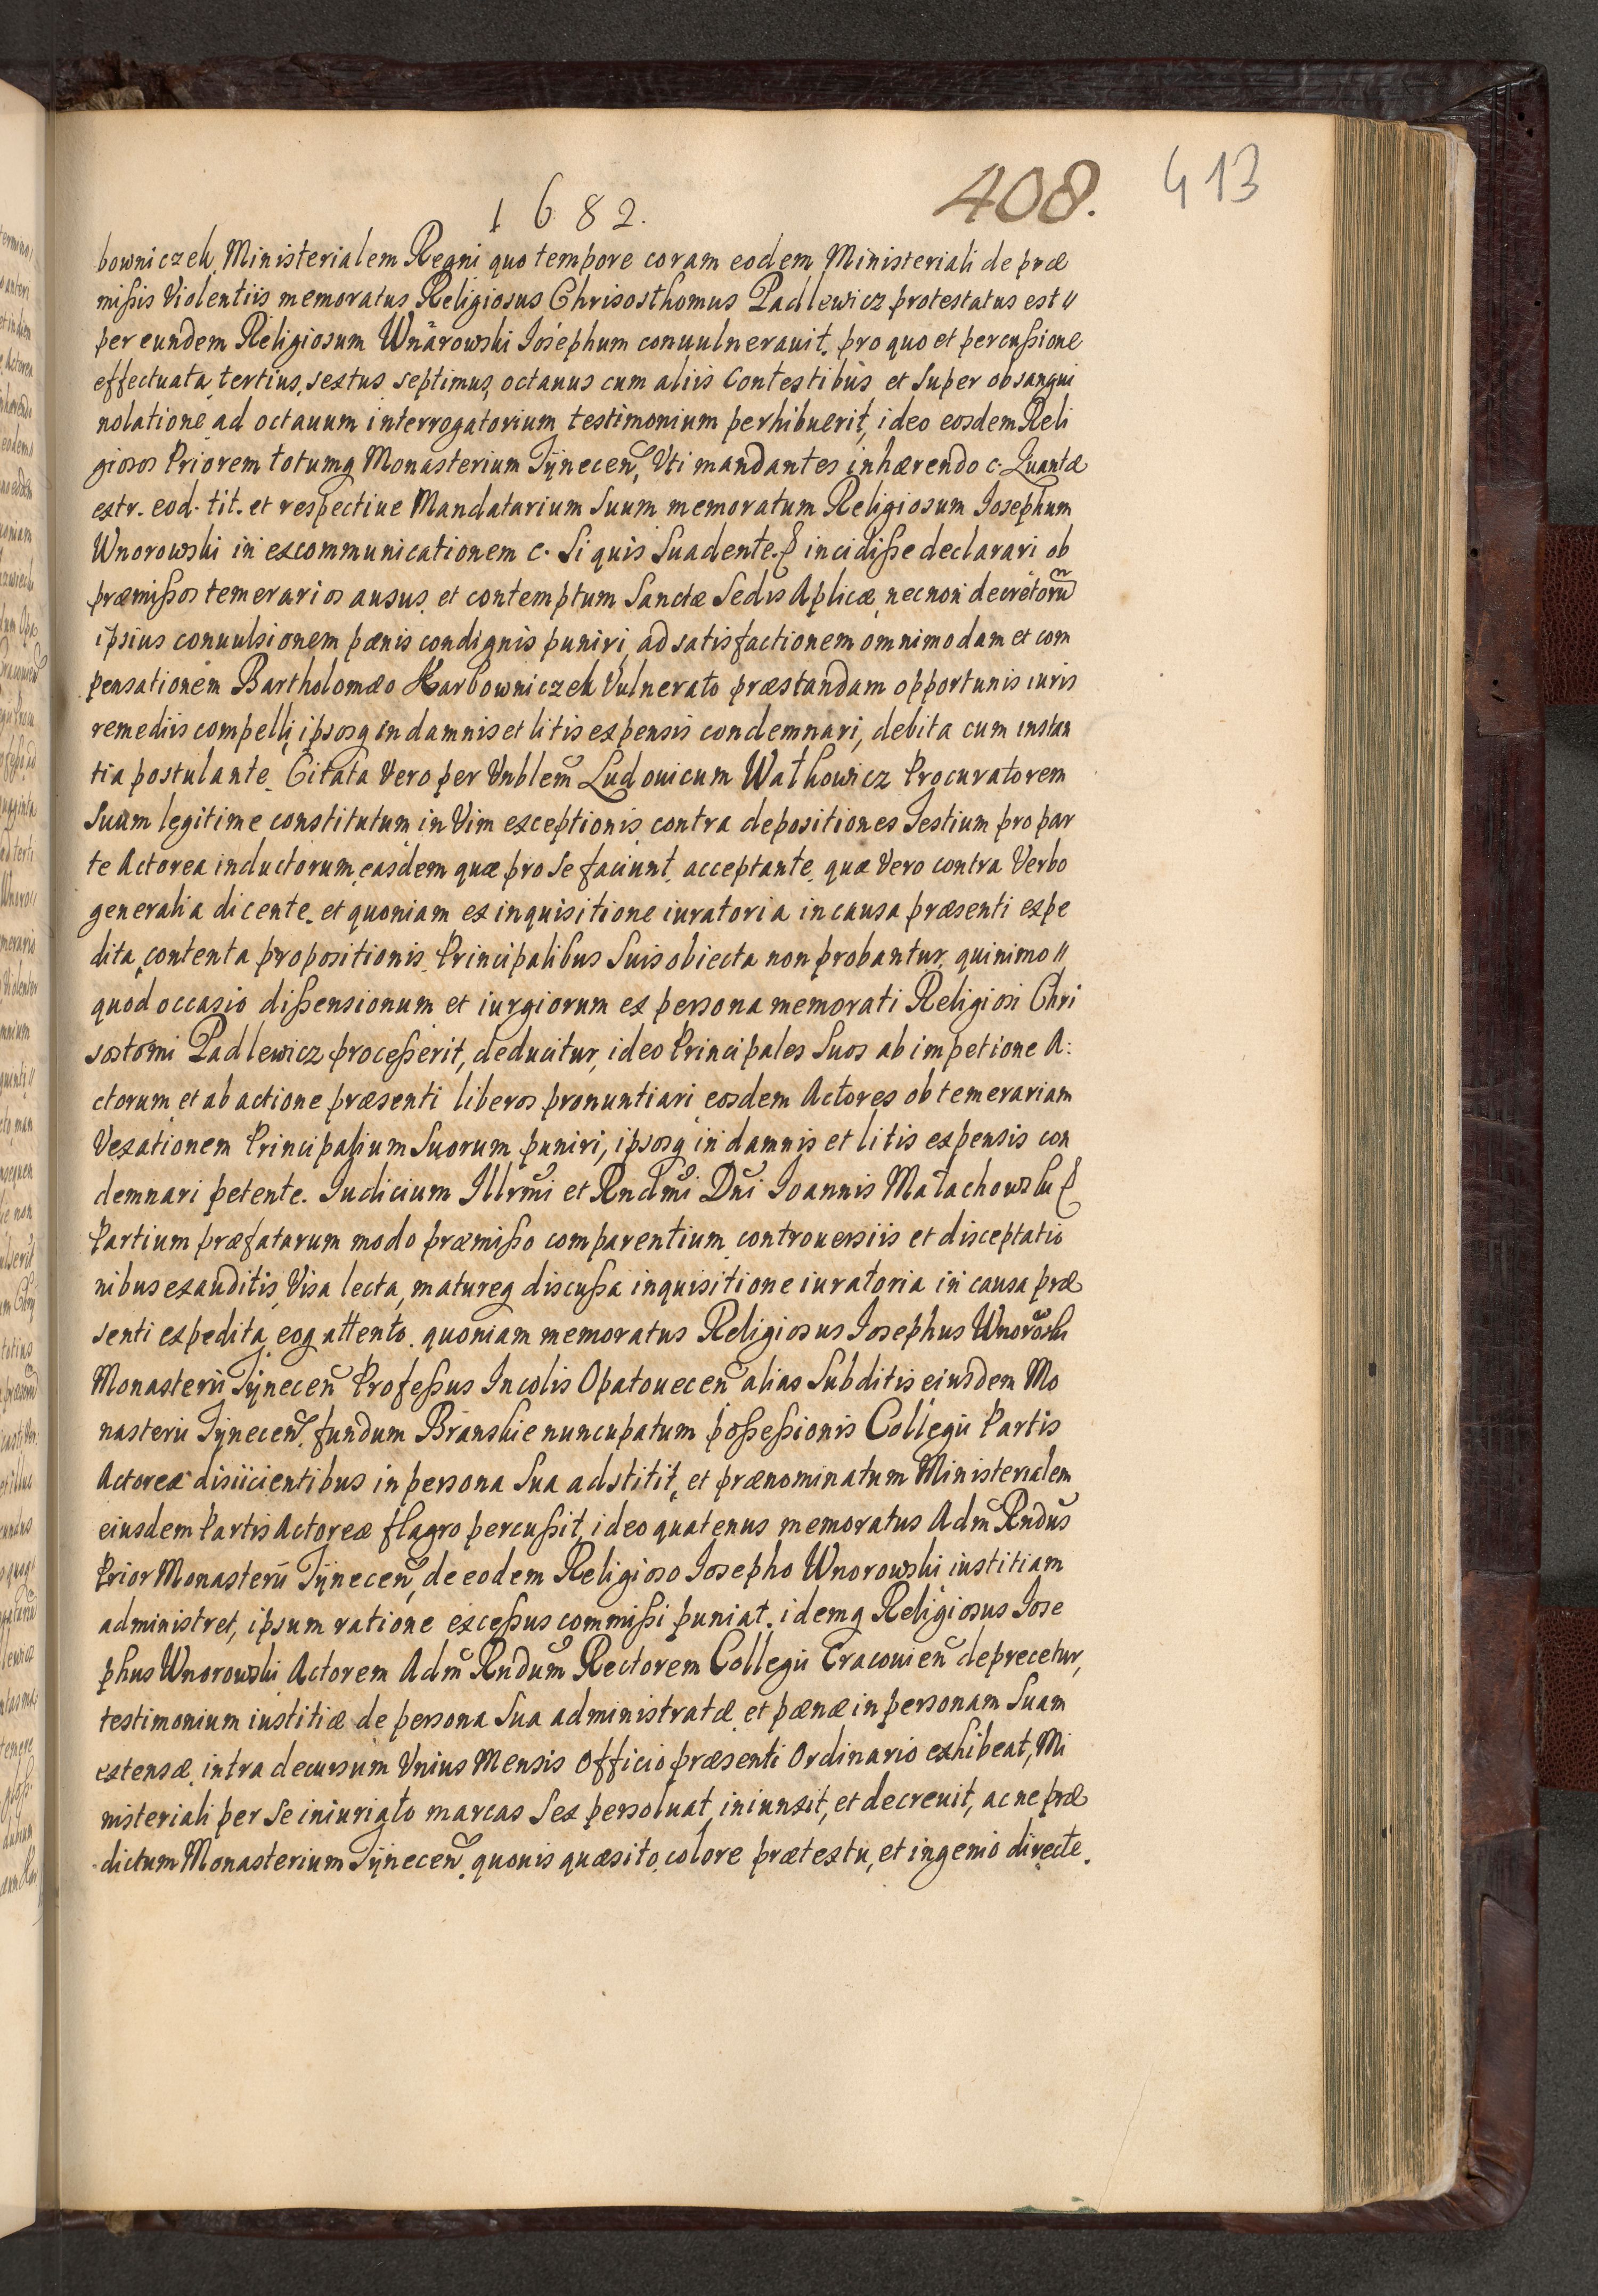 1682.
408.
413
bowniczek Ministerialem Regni quo tempore coram eodem Ministeriali de præ
mißis Violentiis memoratus Religiosus Chrisosthomus Padlewicz protestatus est〃
per eundem Religiosum Wnarowski Iosephum conuulnerauit. pro quo et percußione
effectuata tertius, sextus, septimus, octauus cum aliis Contestibus et super obsangui
nolatione ad octauum interrogatorium testimonium perhibuerit, ideo eosdem Reli
giosos Priorem totumq Monasterium Tÿnecen̄, Vti mandantes inhærendo c. Quantæ
extr. eod. tit. et respectiue Mandatarium Suum memoratum Religiosum Iosephum
Wnorowski in excommunicationem c. Si quis Suadente. & incidiße declarari ob
præmißos temerarios ausus et contemptum Sanctæ Sedis Aplicæ, necnon decretorū
ipsius conuulsionem pænis condignis puniri, ad satisfactionem omnimodam et com
pensationem Bartholomæo Karbowniczek Vulnerato præstandam opportunis iuris
remediis compelli, ipsosq in damnis et litis expensis condemnari, debita cum instan
tia postulante. Citata Vero per Vnblem̄ Ludouicum Wathowicz Procuratorem
Suum legitime constitutum in Vim exceptionis contra depositiones Testium pro par
te Actorea inductorum, easdem quæ pro se faciunt, acceptante, quæ Vero contra Verbo
generalia dicente. et quoniam ex inquisitione iuratoria in causa præsenti expe
dita, contenta propositionis Principalibus Suis obiecta non probantur, quinimo〃
quod occasio dißensionum et iurgiorum ex persona memorati Religiosi Chri
sostomi Padlewicz proceßerit, deducitur, ideo Principales Suos ab impetione A:
ctorum et ab actione præsenti liberos pronuntiari, eosdem Actores ob temerariam
Vexationem Principalium Suorum puniri, ipsosq in damnis et litis expensis con
demnari petente. Iudicium Illrmi et Rndmi Dni Ioannis Małachowski &
Partium præfatarum modo præmißo comparentium controuersiis et disceptatio
nibus exauditis, Visa lecta, matureq discußa inquisitione iuratoria in causa præ
senti expedita, eoq attento. quoniam memoratus Religiosus Iosephus Wnorowski
Monasterii Tÿnecen̄ Profeßus Incolis Opatouecen̄ alias Subditis eiusdem Mo
nasterii Tÿnecen̄. fundum Branskie nuncupatum poßeßionis Collegii Partis
Actoreæ disiicientibus in persona Sua adstitit, et prænominatum Ministerialem
eiusdem Partis Actoreæ flagro percußit, ideo quatenus memoratus Adm̄ Rndus
Prior Monasterii Tÿnecen̄, de eodem Religioso Iosepho Wnorowski iustitiam
administret, ipsum ratione exceßus commißi puniat. idemq Religiosus Iose
phus Wnorowski Actorem Adm̄ Rndum Rectorem Collegii Cracouien̄ deprecetur,
testimonium iustitiæ de persona Sua administratæ et pænæ in personam Suam
extensæ, intra decursum Vnius Mensis Officio præsenti Ordinario exhibeat, Mi
nisteriali per Se iniuriato marcas Sex persoluat, iniunxit, et decreuit, ac ne præ
dictum Monasterium Tÿnecen̄. quouis quæsito colore prætextu, et ingenio directe.